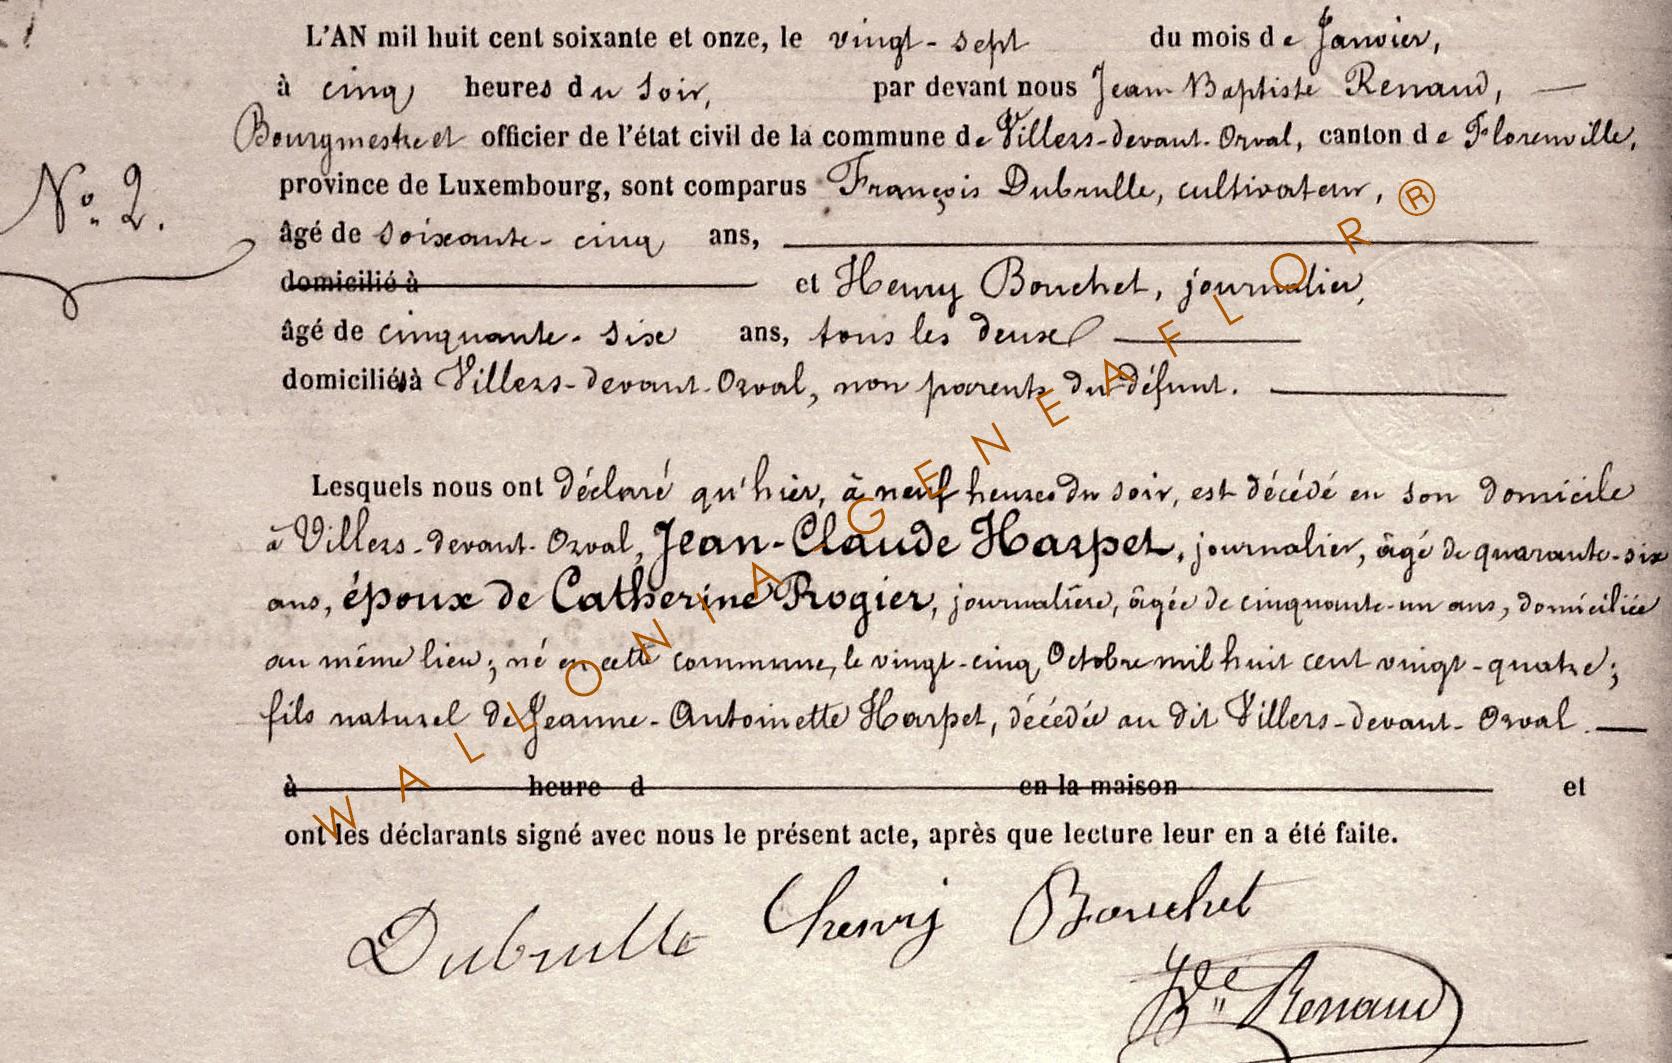 L'AN mil huit cent soixante et onze, le vingt-sept du mois de Janvier,
à cinq heures du soir, par devant nous Jean Baptiste Renaud,
Bourgmestre et officier de l'état civil de la commune de Villers-devant-Orval, canton de Florenville,
province de Luxembourg, sont comparus François Dubrulle, cultivateur,
N° 2.
âgé de soixante-cinq ans,
domicilié à et Henry Bouchet, journalier,
âgé de cinquante-six ans, tous les deux
domiciliés à Villers-devant-Orval, non parents du défunt.
Lesquels nous ont déclaré qu'hier, à neuf heures du soir, est décédé en son domicile
à Villers-devant-Orval, Jean-Claude Harpet, journalier, âgé de quarante-six
ans, époux de Catherine Rogier, journalière, âgée de cinquante-un ans, domiciliée
au même lieu; né en cette commune, le vingt-cinq Octobre mil huit cent vingt-quatre;
fils naturel de Jeanne-Antoinette Harpet, décédée au dit Villers-devant-Orval.
à heure d en la maison et
ont les déclarants signé avec nous le présent acte, après que lecture leur en a été faite.
Dubrulle Chenry Bouchet
Renaud
WALLONIA GENEAFLOR®